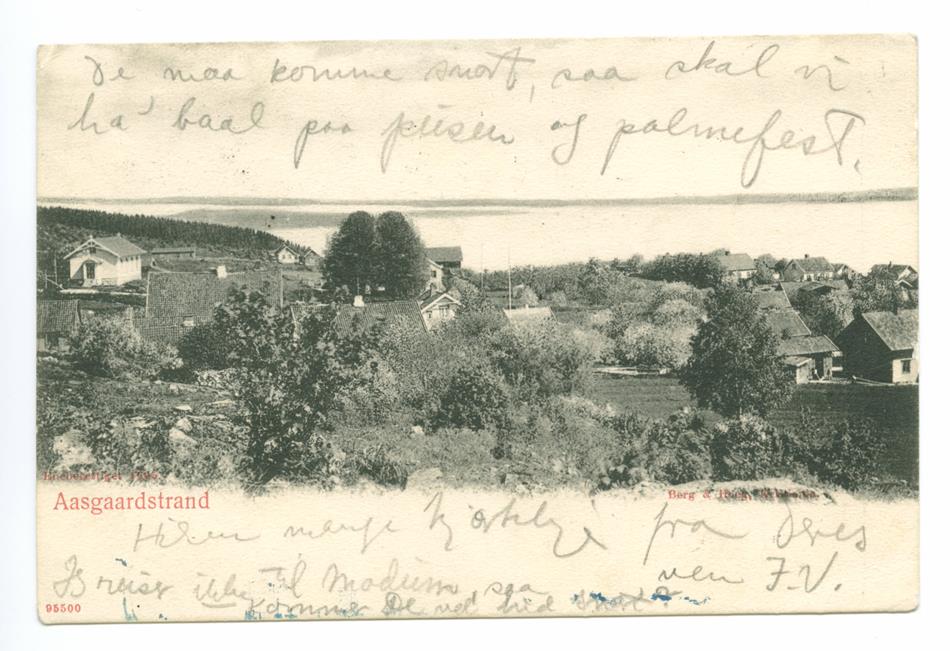 De maa komme snart, saa skal vi
ha' baal paa piisen og palmefest.
Eneberettiget
Aasgaardstrand
Berg &
Hilsen mange fra Deres
ven J.V.
reiser ikke til Modum, saa
kommer De vel hid snart?
95500